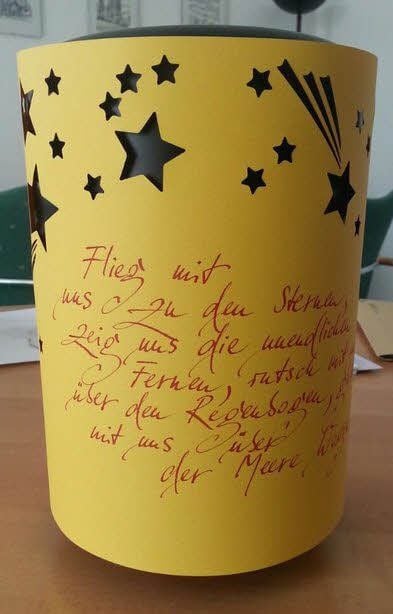 Flieg mit
uns zu den Sternen,
zeig uns die unendlichen
Fernen, rutsch mit
über den Regenbogen,
mit uns über
der Meere